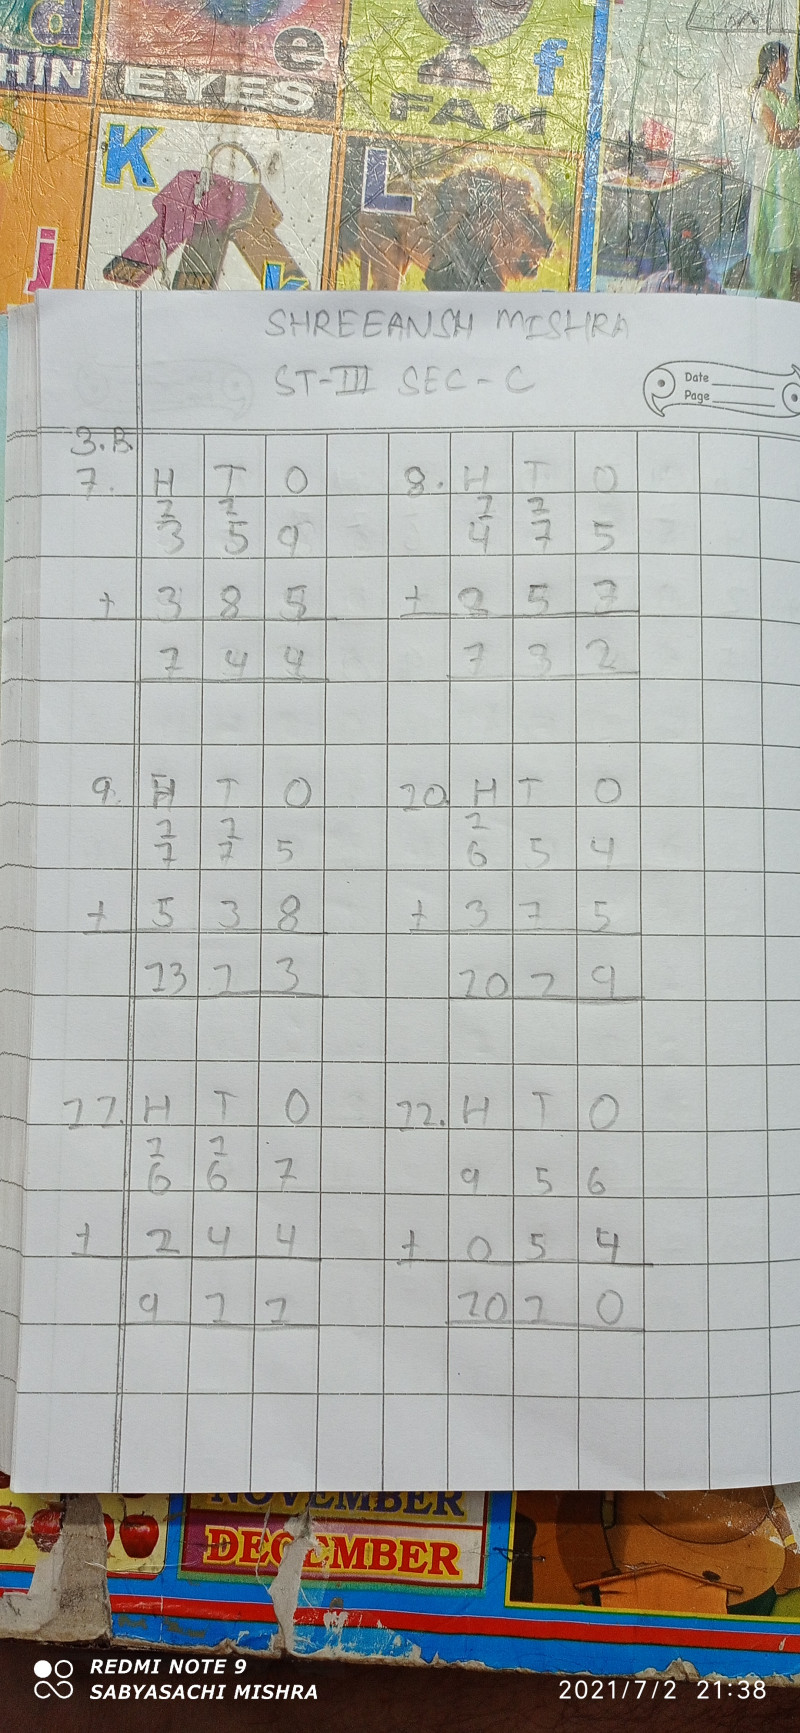 d
HIN
e
EYES
f
FAN
K
L
j
k
SHREEANSH MISHRA
ST-III SEC-C
Date
Page
3.B
7. H T O 8. H T O
1 1 1 1
3 5 9 4 7 5
+ 3 8 5 + 2 5 7
7 4 4 7 3 2
9. H T O 10. H T O
1 1 1
7 7 5 6 5 4
+ 5 3 8 + 3 7 5
13 1 3 10 2 9
11. H T O 12. H T O
1 1
6 6 7 9 5 6
+ 2 4 4 + 0 5 4
9 1 1 10 1 0
NOVEMBER
DECEMBER
REDMI NOTE 9
SABYASACHI MISHRA
2021/7/2 21:38